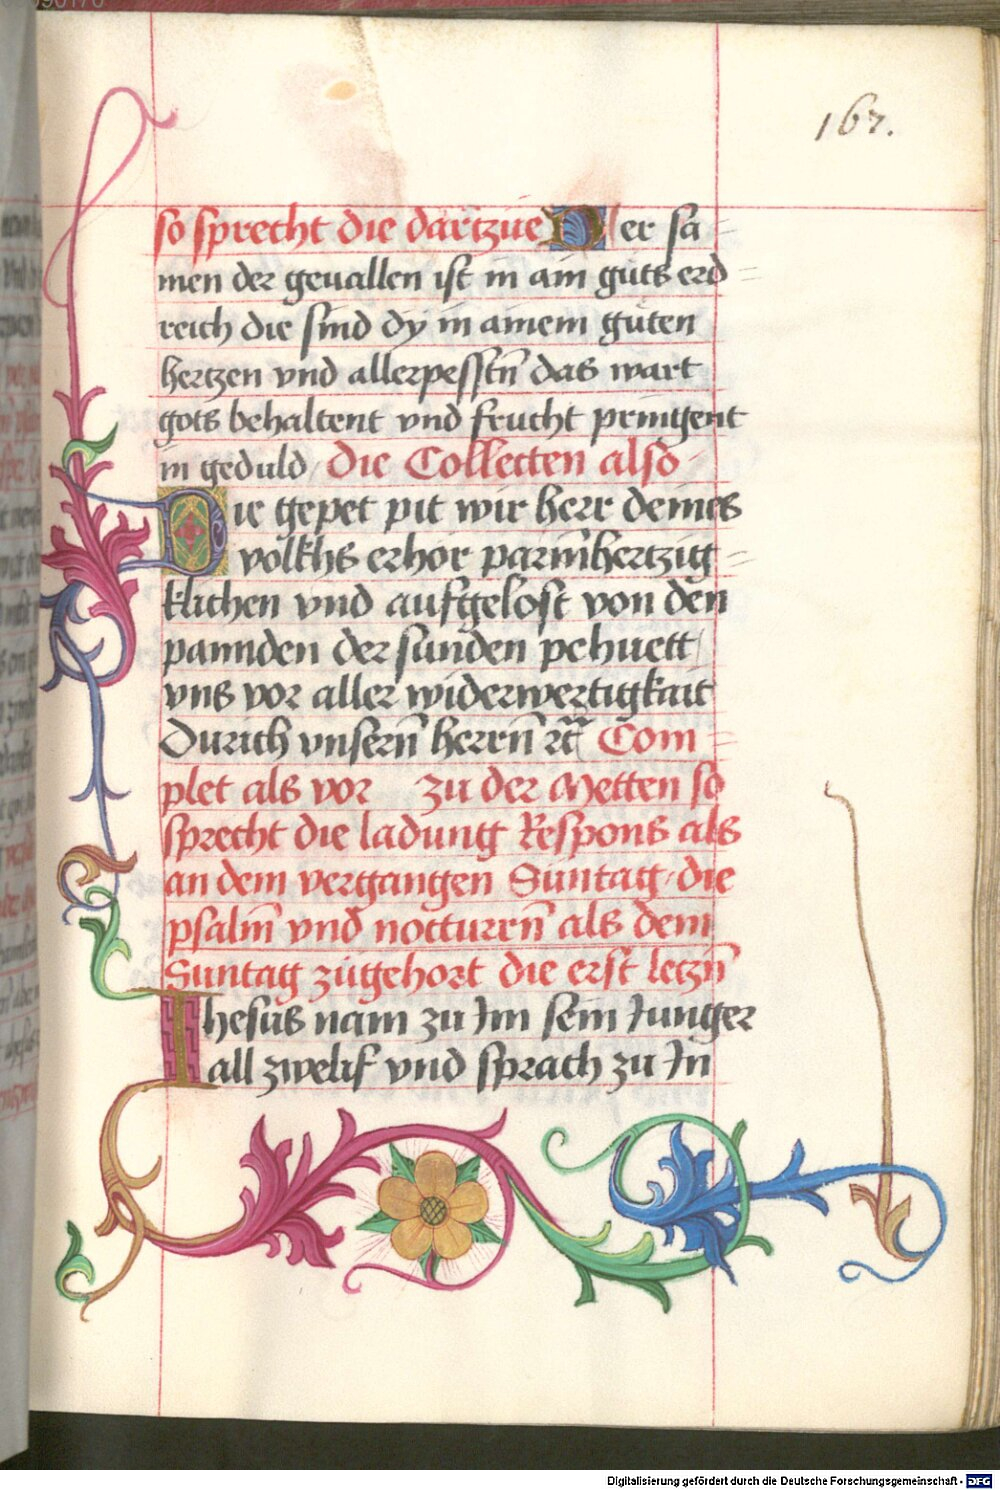 167.
so sprecht die dartzue Der sa=
men der geuallen ist in ain guts erd=
reich die sind dy in ainem guten
hertzen vnd allerpesstn̄ das wart
gots behaltent vnd frucht pringent
in geduld / Die Collecten also
Die gepet pit wir herr deines
volkhs erhör parm̄hertzig=
klichen vnd aufgelost von den
pannden der sunden pehuett
vns vor aller widerwertigkait
Durich vnsern̄ herrn̄ ꝛc Com=
plet als vor zu der Metten so
sprecht die ladung Respons als
an dem vergangen Suntag / die
psalm̄ vnd notturn̄ als dem
Suntag zugehort die erst letzn̄
Ihesus nam zu Im sein Iunger
all zwelif vnd sprach zu In
Digitalisierung gefördert durch die Deutsche Forschungsgemeinschaft - DFG